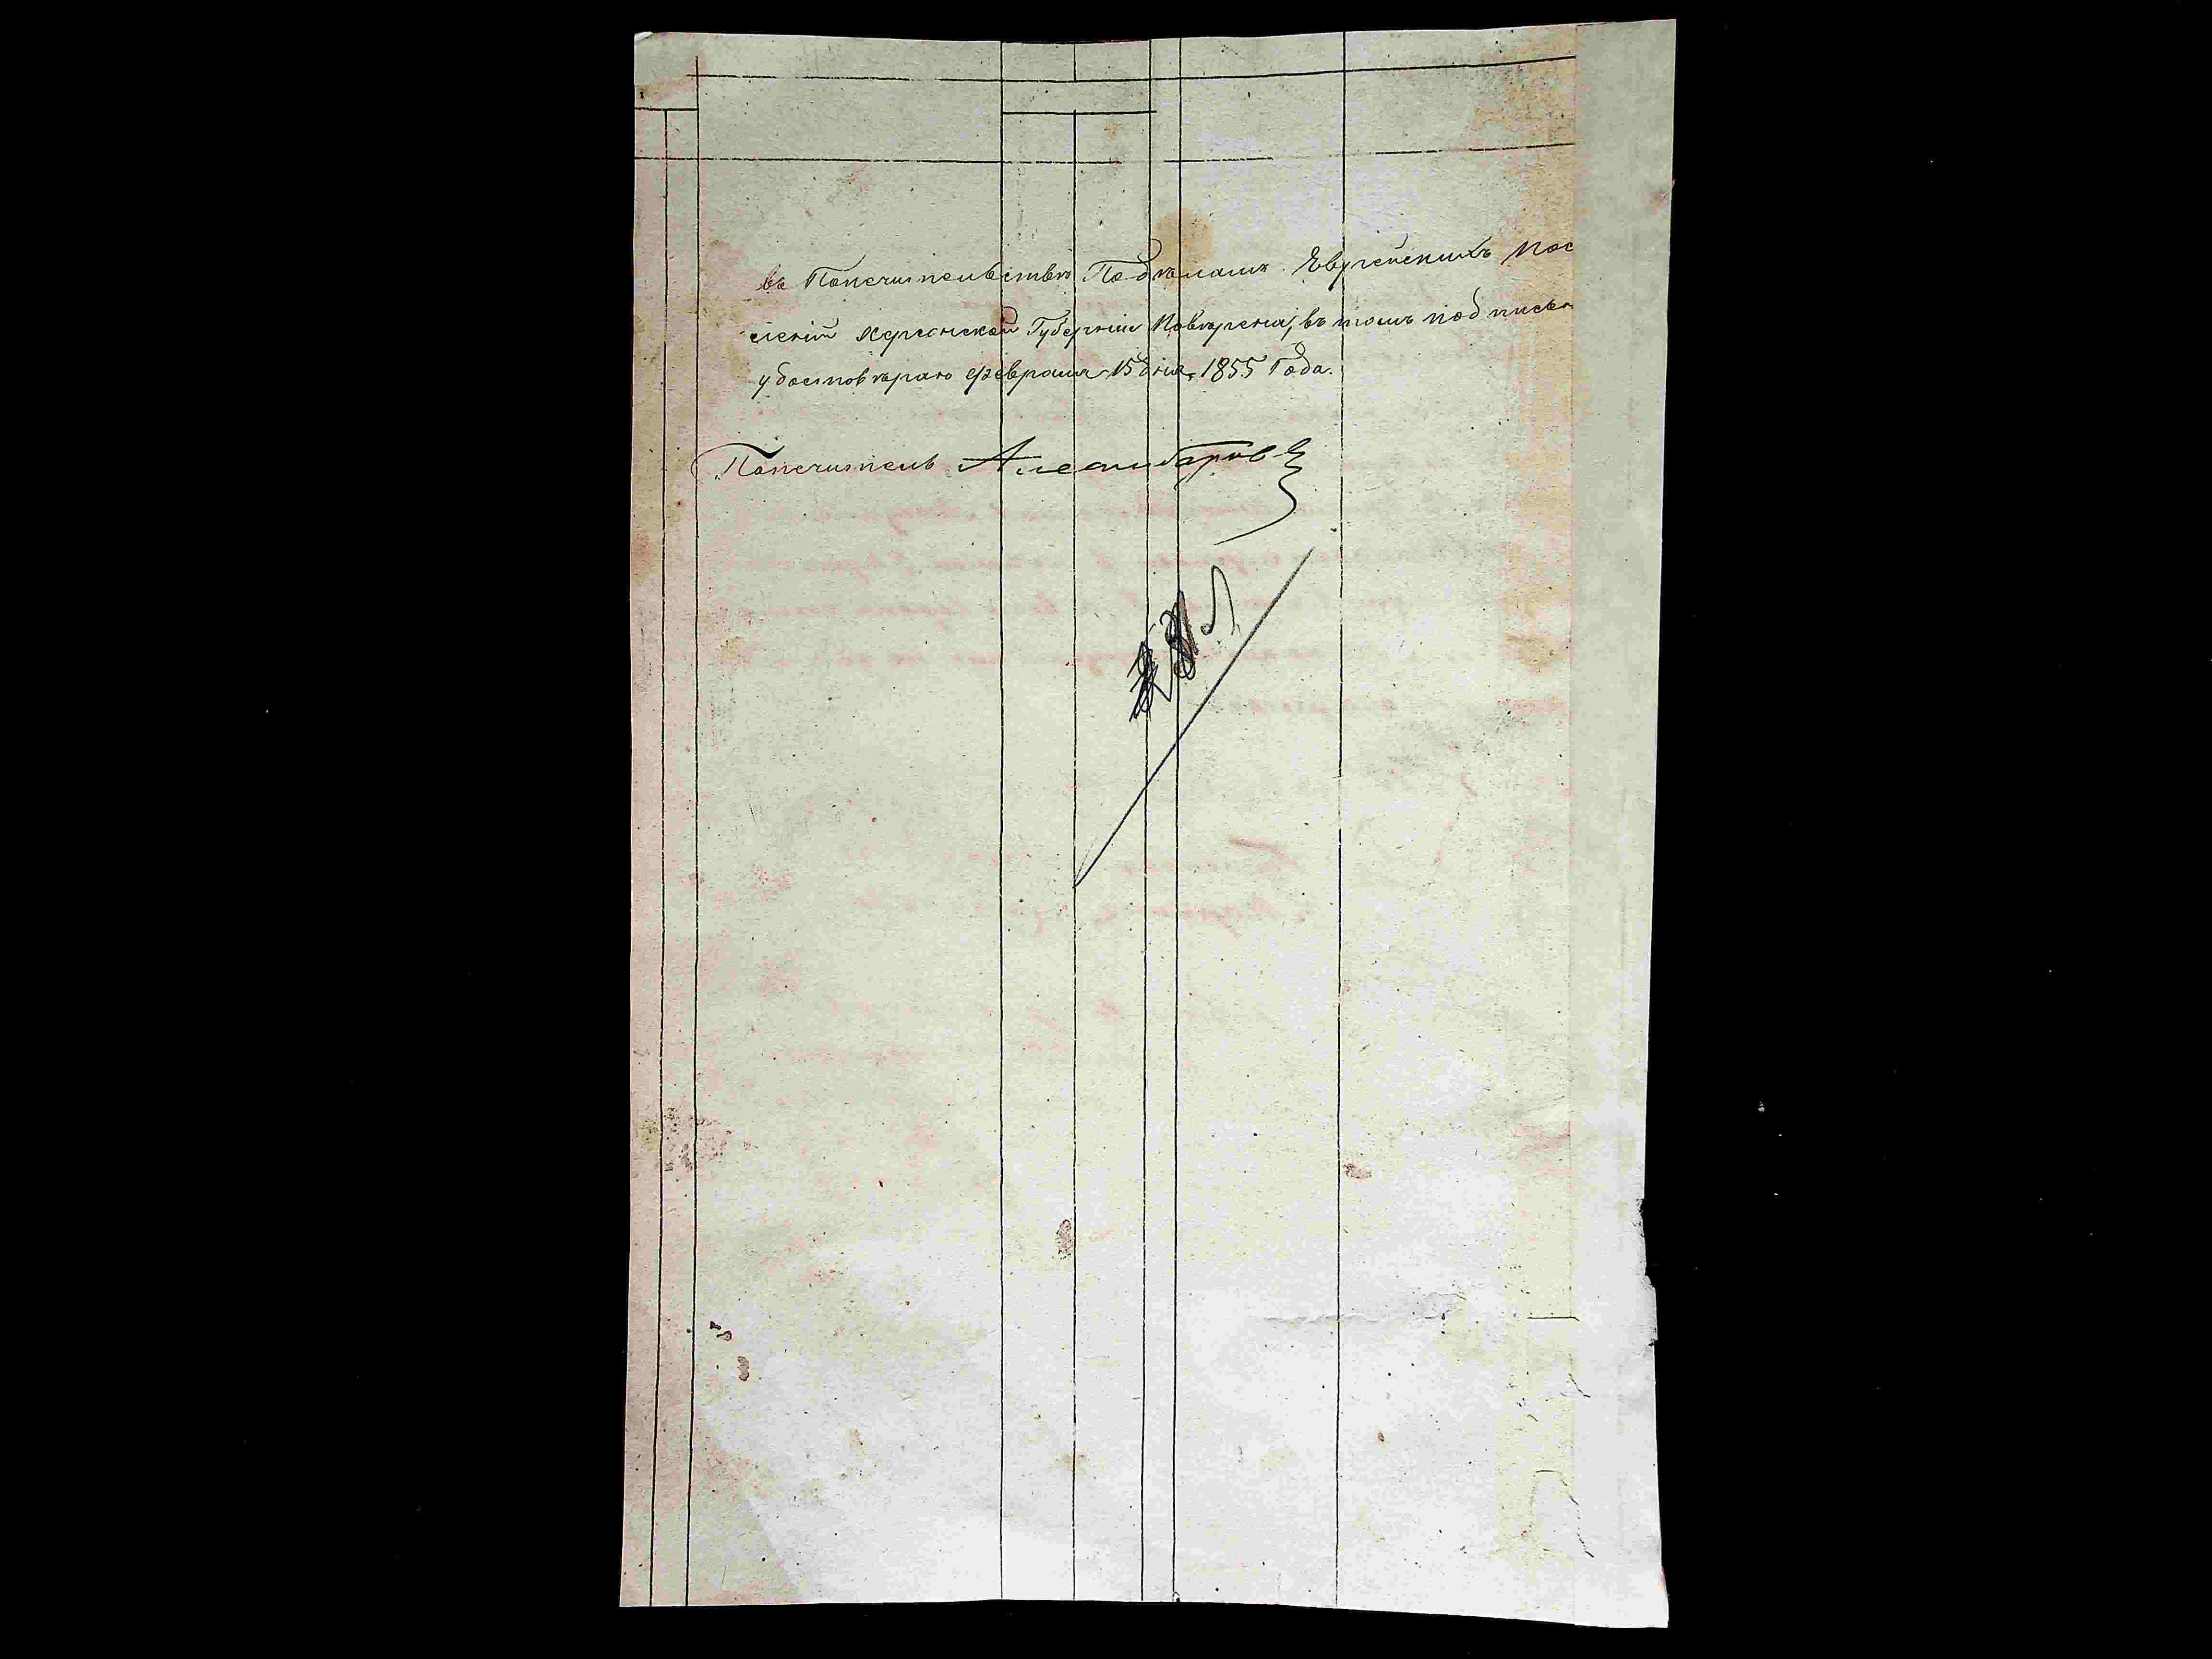 въ Попечительствѣ По дѣламъ Еврейскихъ Пос
еленій Херсонской Губерніи Повѣрена, въ томъ подписью
удостовѣраю Февраля 15 дня, 1855 Года.
Попечитель